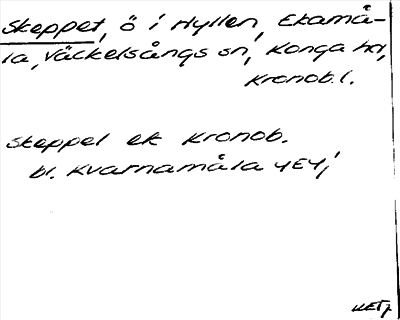 Skeppet, ö i Hyllen, Ekamå-
la, Väckelsångs sn, Konga hd,
Kronob. l.
skeppel ek Kronob.
bl. Kvarnamåla 4E4,